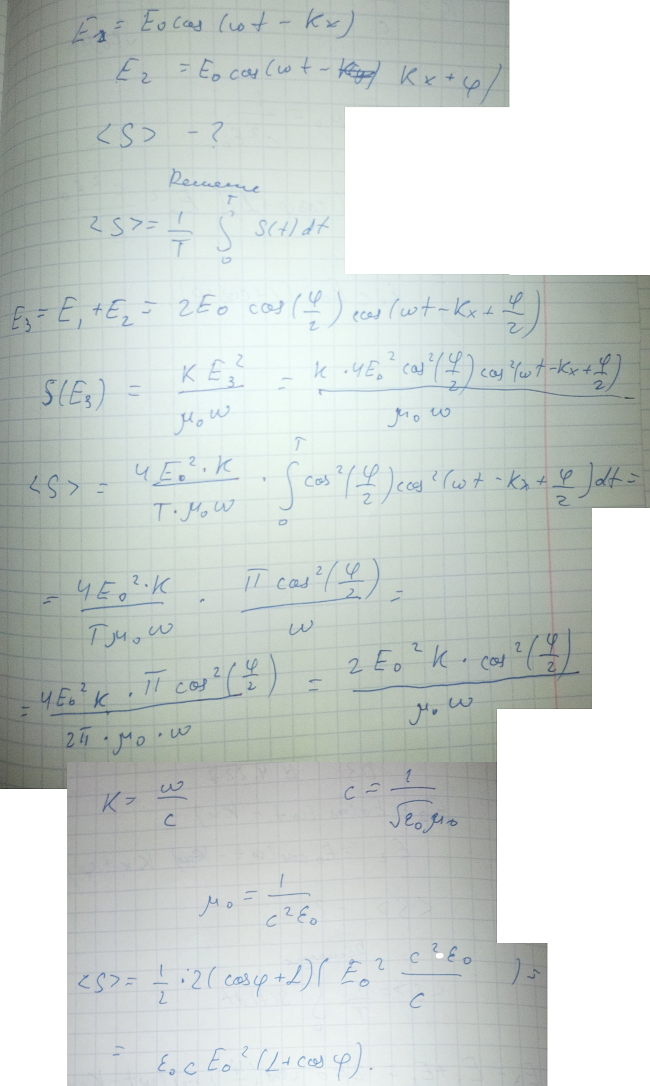 E₁ = E₀ cos (ωt − Kx)
E₂ = E₀ cos (ωt − Kx + φ)
<S> − ?
Решение
<S> = 1/T ∫₀ᵀ S(t) dt
E₃ = E₁ + E₂ = 2E₀ cos(φ/2) cos(ωt − Kx + φ/2)
S(E₃) = K E₃² / μ₀ω = K · 4E₀² cos²(φ/2) cos²(ωt − Kx + φ/2) / μ₀ω
<S> = 4E₀² · K / T · μ₀ω · ∫₀ᵀ cos²(φ/2) cos²(ωt − Kx + φ/2) dt =
= 4E₀² · K / Tμ₀ω · π cos²(φ/2) / ω =
= 4E₀² K · π cos²(φ/2) / 2π · μ₀ · ω = 2E₀² K · cos²(φ/2) / μ₀ω
K = ω/c c = 1/√ε₀μ₀
μ₀ = 1 / c²ε₀
<S> = 1/2 · 2(cosφ + 1)( E₀² c²ε₀ / c ) =
= ε₀ c E₀² (1 + cos φ).